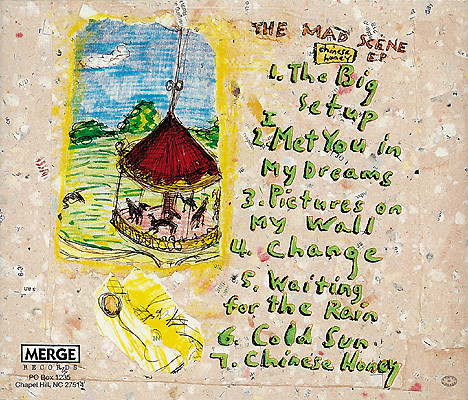 THE MAD SCENE
chinese honey E.P.
1. The Big
setup
2. I Met You in
My Dreams
3. Pictures on
My Wall
4. Change
5. Waiting
for the Rain
6. Cold Sun
7. Chinese Honey
MERGE
RECORDS
PO Box 1235
Chapel Hill, NC 27514